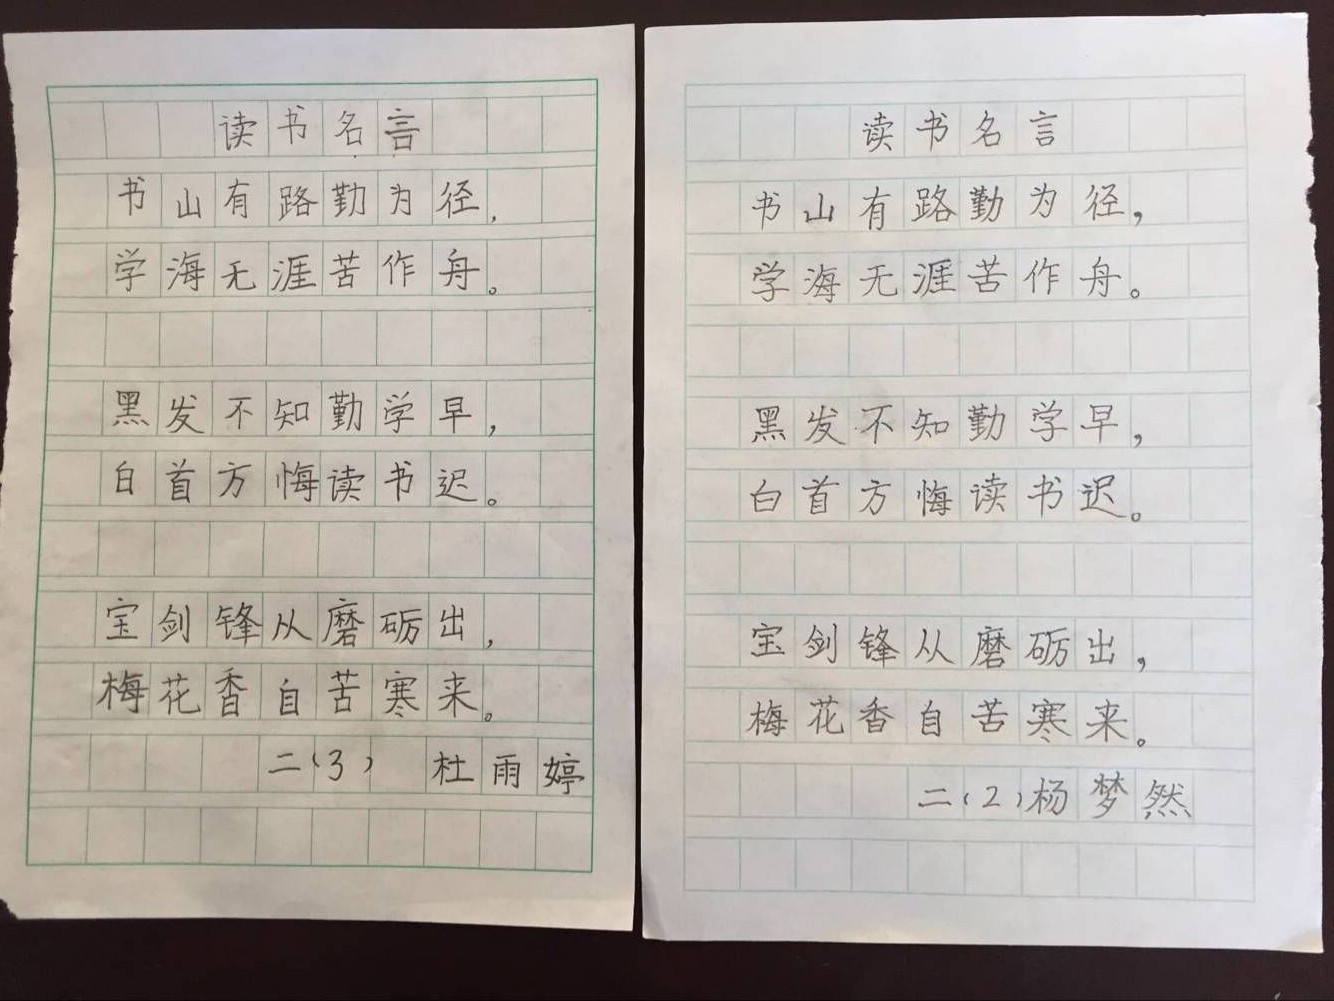 读书名言
书山有路勤为径,
学海无涯苦作舟。
黑发不知勤学早,
白首方悔读书迟。
宝剑锋从磨砺出,
梅花香自苦寒来。
二(3) 杜雨婷
读书名言
书山有路勤为径,
学海无涯苦作舟。
黑发不知勤学早,
白首方悔读书迟。
宝剑锋从磨砺出,
梅花香自苦寒来。
二(2)杨梦然